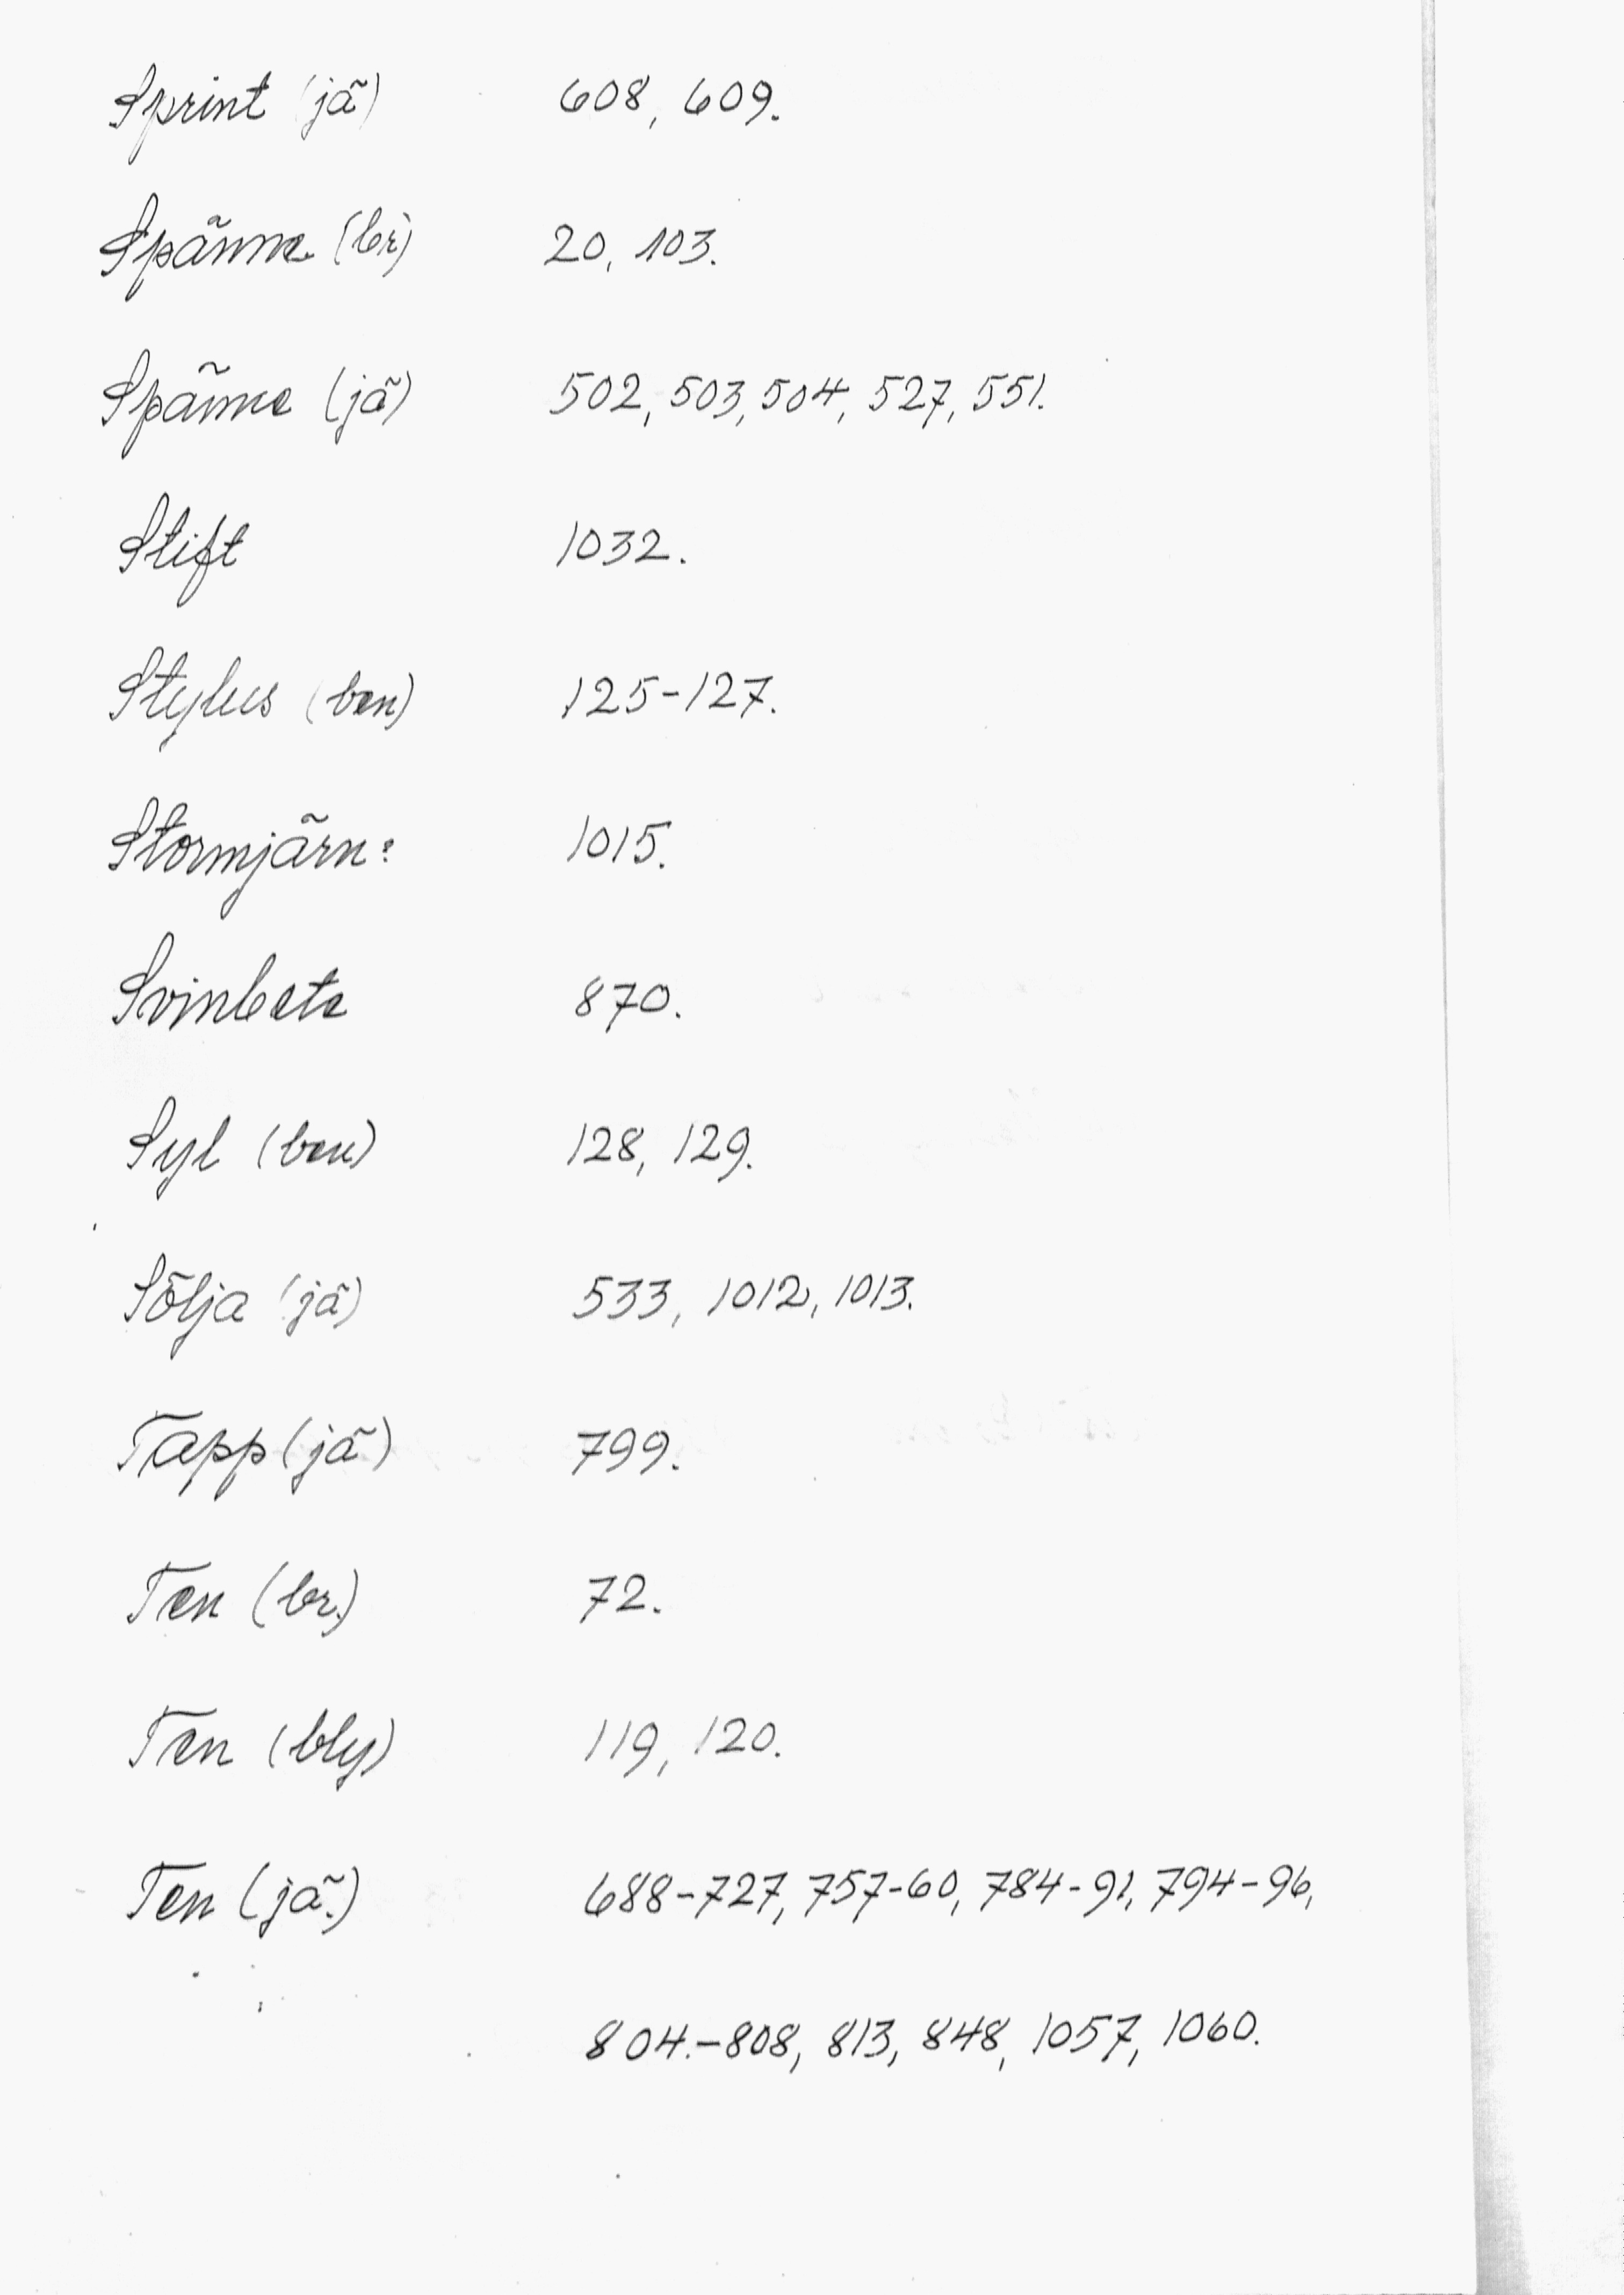 Sprint (jä) 608, 609.
Spänne (br) 20, 103.
Spänne (jä) 502, 503, 504, 527, 551.
Stift 1032.
Stylus (ben) 125-127.
Stormjärn: 1015.
Svinbete 870.
Syl (ben) 128, 129.
Sölja (jä) 533, 1012, 1013.
Tapp (jä) 799.
Ten (br.) 72.
Ten (bly) 119, 120.
Ten (jä.) 688-727, 757-60, 784-91, 794-96,
804.-808, 813, 848, 1057, 1060.